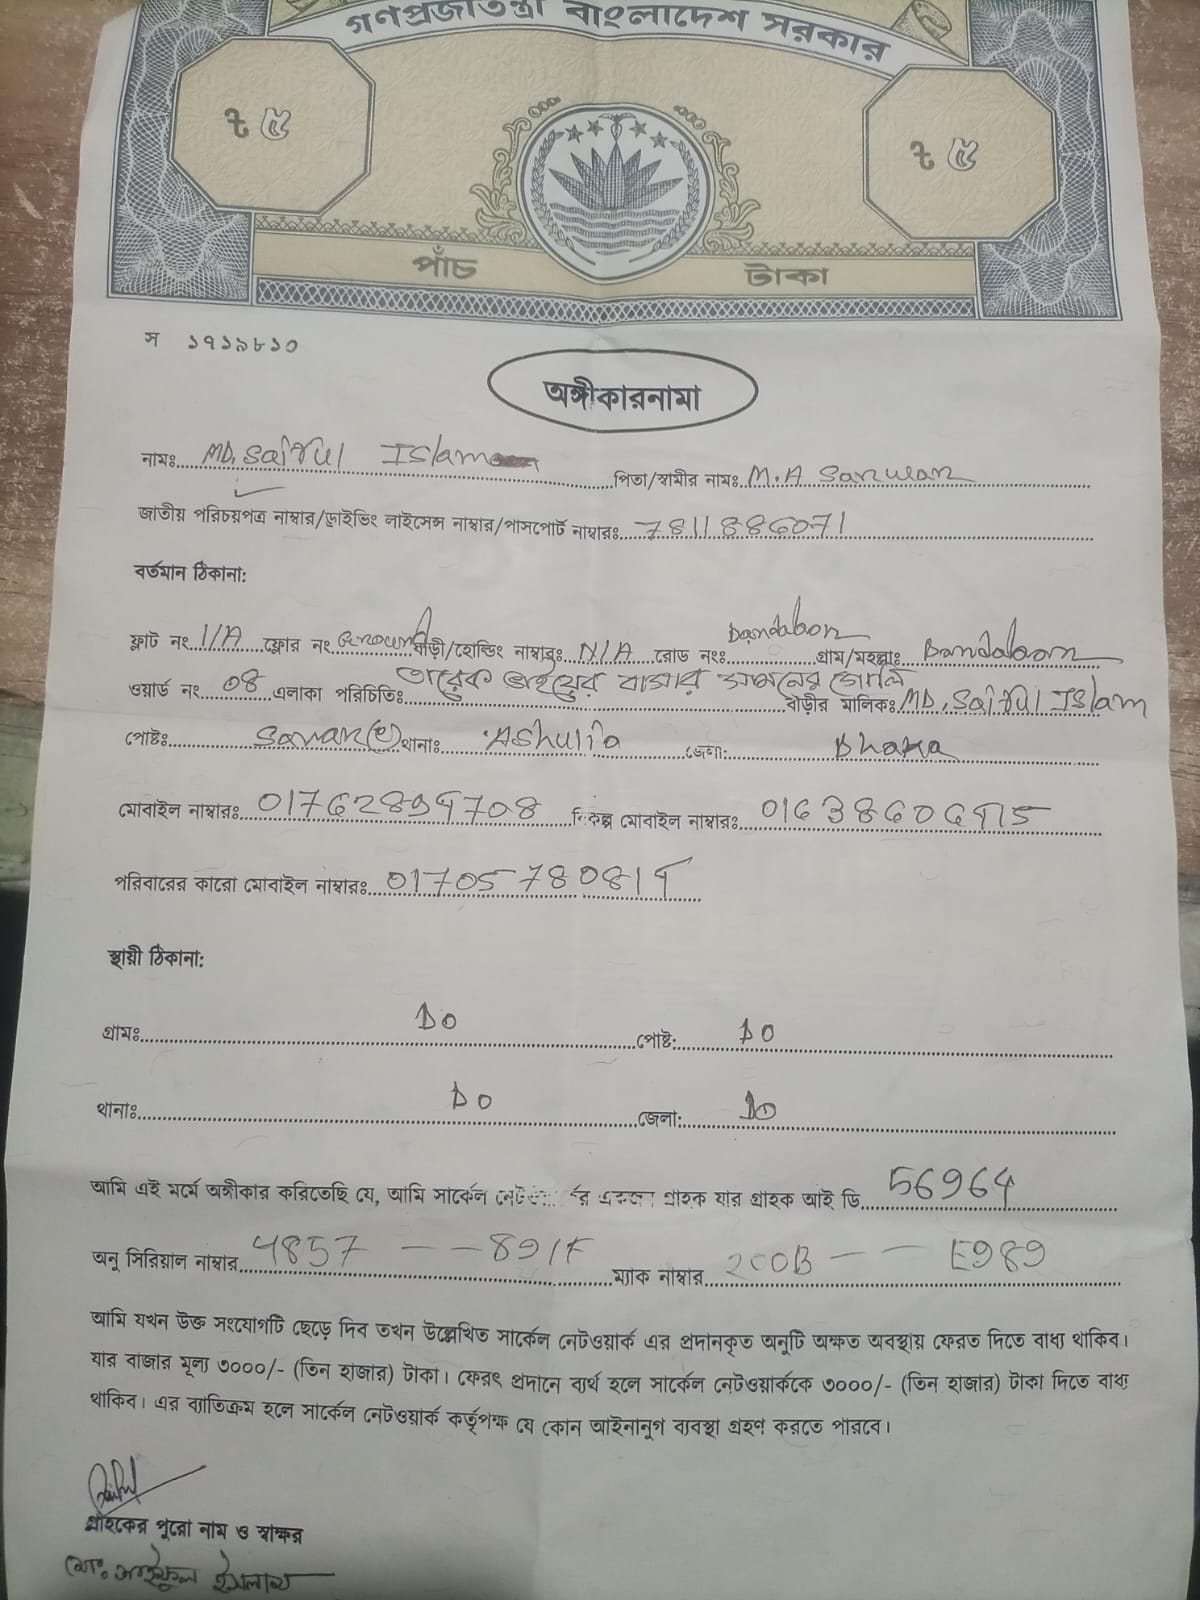 গণপ্রজাতন্ত্রী বাংলাদেশ সরকার
৳ ৫ ৳ ৫
পাঁচ টাকা
স ১৭১৯৮১০
অঙ্গীকারনামা
নামঃ MD. Saiful Islam পিতা/স্বামীর নামঃ M.A Sarwar
জাতীয় পরিচয়পত্র নাম্বার/ড্রাইভিং লাইসেন্স নাম্বার/পাসপোর্ট নাম্বারঃ 7811886071
বর্তমান ঠিকানা:
ফ্লাট নং 1/A ফ্লোর নং Ground বাড়ী/হোল্ডিং নাম্বারঃ N/A রোড নংঃ Dandabor গ্রাম/মহল্লাঃ Dandabor
ওয়ার্ড নং 08 এলাকা পরিচিতিঃ তারেক ভাইয়ের বাসার সামনের গলি বাড়ীর মালিকঃ MD. Saiful Islam
পোষ্টঃ Savar থানাঃ Ashulia জেলা: Dhaka
মোবাইল নাম্বারঃ 01762894708 বিকল্প মোবাইল নাম্বারঃ 01638606415
পরিবারের কারো মোবাইল নাম্বারঃ 01705780814
স্থায়ী ঠিকানা:
গ্রামঃ DO পোষ্ট: DO
থানাঃ DO জেলা: DO
আমি এই মর্মে অঙ্গীকার করিতেছি যে, আমি সার্কেল এর একজন গ্রাহক যার গ্রাহক আই ডি 56964
অনু সিরিয়াল নাম্বার 4857 -- 891F ম্যাক নাম্বার 200B -- E989
আমি যখন উক্ত সংযোগটি ছেড়ে দিব তখন উল্লেখিত সার্কেল নেটওয়ার্ক এর প্রদানকৃত অনুটি অক্ষত অবস্থায় ফেরত দিতে বাধ্য থাকিব।
যার বাজার মূল্য ৩০০০/- (তিন হাজার) টাকা। ফেরৎ প্রদানে ব্যর্থ হলে সার্কেল নেটওয়ার্ককে ৩০০০/- (তিন হাজার) টাকা দিতে বাধ্য
থাকিব। এর ব্যাতিক্রম হলে সার্কেল নেটওয়ার্ক কর্তৃপক্ষ যে কোন আইনানুগ ব্যবস্থা গ্রহণ করতে পারবে।
গ্রাহকের পুরো নাম ও স্বাক্ষর
মোঃ সাইফুল ইসলাম